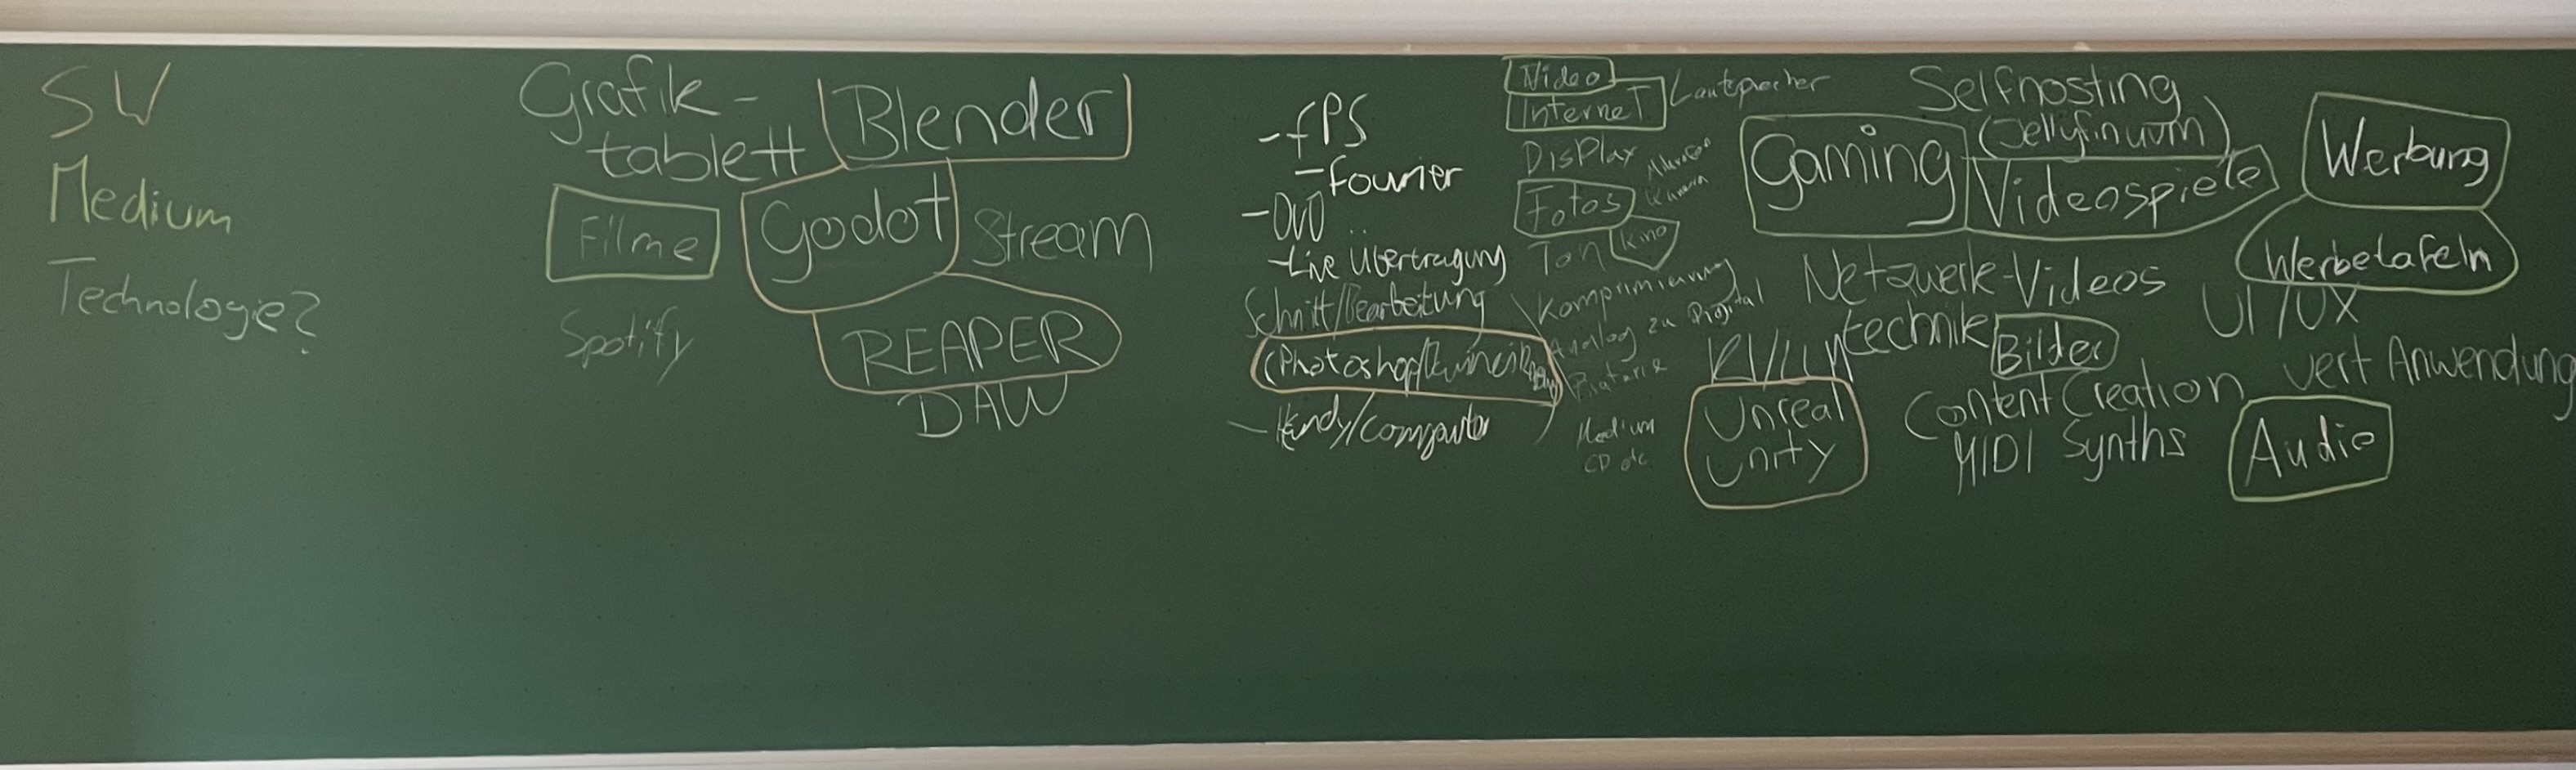 SW
Medium
Technologie?
Grafik-
tablett
Blender
Filme
Godot
Stream
Spotify
REAPER
DAW
-fPS
-Fourier
-DVD
-Live Übertragung
Schnitt/Bearbeitung
(Photoshop/
-Handy/Computer
Video
Internet
Lautpracher
Display
Kamera
Fotos
Ton
Kino
Komprimierung
Analog zu Digital
Medium
CD etc
Selfhosting
(Jellyfinuvm)
Gaming
Videospiele
Werbung
Werbetafeln
Netzwerk-
technik
Videos
UI/UX
KI/LLM
Bilder
vert Anwendung
Unreal
Unity
Content Creation
MIDI Synths
Audio